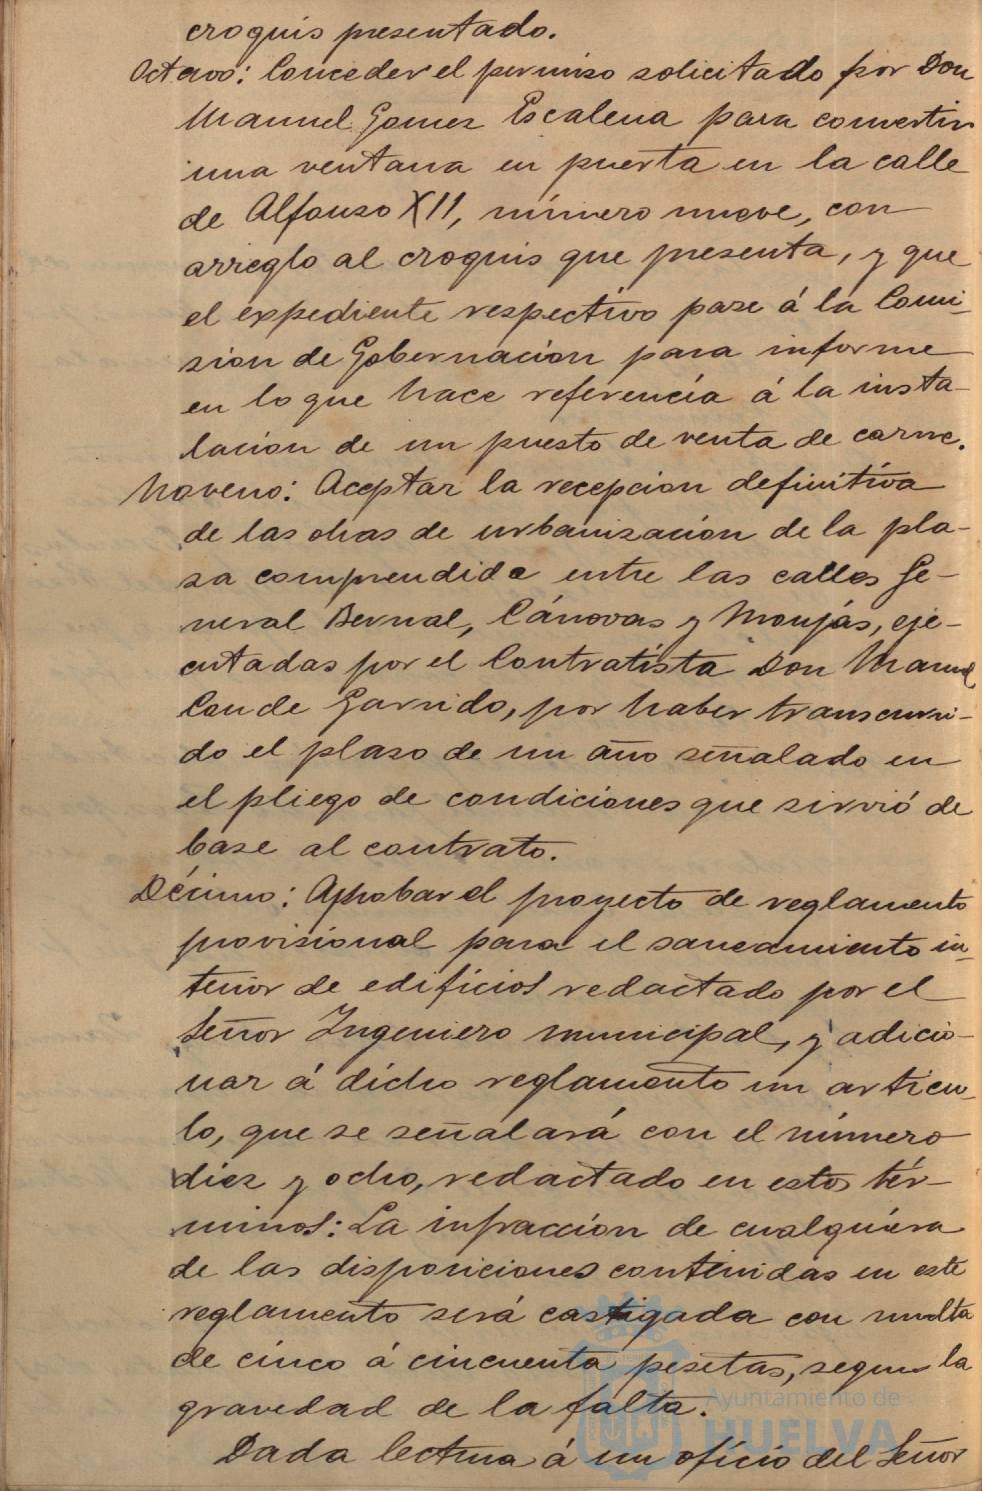 croquis presentado.
Octavo: Conceder el permiso solicitado por Don
Manuel Gomez Escalena para convertir
una ventana en puerta en la calle
de Alfonso XII, número nueve, con
arreglo al croquis que presenta, y que
el expediente respectivo pase á la Comi-
sion de Gobernacion para informe
en lo que hace referencia á la insta-
lacion de un puesto de venta de carne.
Noveno: Aceptar la recepcion definitiva
de las obras de urbanizacion de la pla-
za comprendida entre las calles Ge-
neral Bernal, Cánovas y Monjas, eje-
cutadas por el Contratista Don Manuel
Conde Garrido, por haber transcurri-
do el plazo de un año señalado en
el pliego de condiciones que sirvió de
base al contrato.
Décimo: Aprobar el proyecto de reglamento
provisional para el saneamiento in-
terior de edificios redactado por el
Señor Ingeniero municipal, y adicio-
nar á dicho reglamento un articu-
lo, que se señalará con el número
diez y ocho, redactado en estos tér-
minos: La infraccion de cualquiera
de las disposiciones contenidas en este
reglamento será castigada con multa
de cinco á cincuenta pesetas, segun la
gravedad de la falta.
Dada lectura á un oficio del Señor
Ayuntamiento de
HUELVA